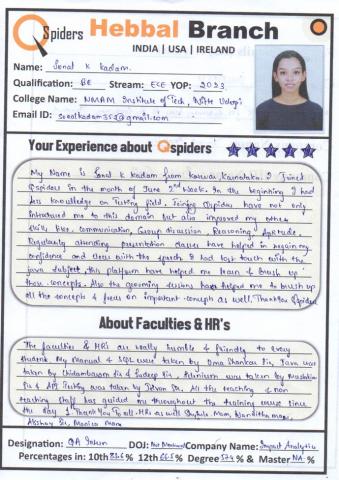 QSpiders Hebbal Branch
INDIA | USA | IRELAND
Name: Sonal K Kadam.
Qualification: BE Stream: ECE YOP: 2023
College Name: NMAM Institute of Tech, Nitte Udupi
Email ID: sonalkadam352@gmail.com
Your Experience about Qspiders
My Name is Sonal K Kadam from Karwar, Karnataka. I Joined
Qspiders in the month of June 2nd Week. In the beginning I had
less knowledge on Testing field. Joining Qspiders have not only
introduced me to this domain but also improved my other
skills like, communication, Group discussion, Reasoning, Aptitude.
Regularly attending presentation classes have helped in regain my
confidence and clear with the speech. I had lost touch with the
java subject, this platform have helped me learn & brush up
those concepts. Also the grooming sessions have helped me to brush up
all the concepts & focus on important concepts as well. Thank you Qspiders
About Faculties & HR's
The faculties & HRs are really humble & friendly to every
students. My Manual & SQL were taken by Uma Shankar Sir, Java was
taken by Chidambaram Sir & Sandeep Sir, Selinium was taken by
Sir & API Testing was taken by Sir. All the teaching & non
teaching staff has guided me throughout the training course since
the day 1. Thank You to all. HRs as well Mam, Nandhitha mam,
Akshay Sir, Monica Mam
Designation: QA Intern DOJ: Not Mentioned Company Name: Impact Analytics
Percentages in: 10th % 12th % Degree % & Master NA %